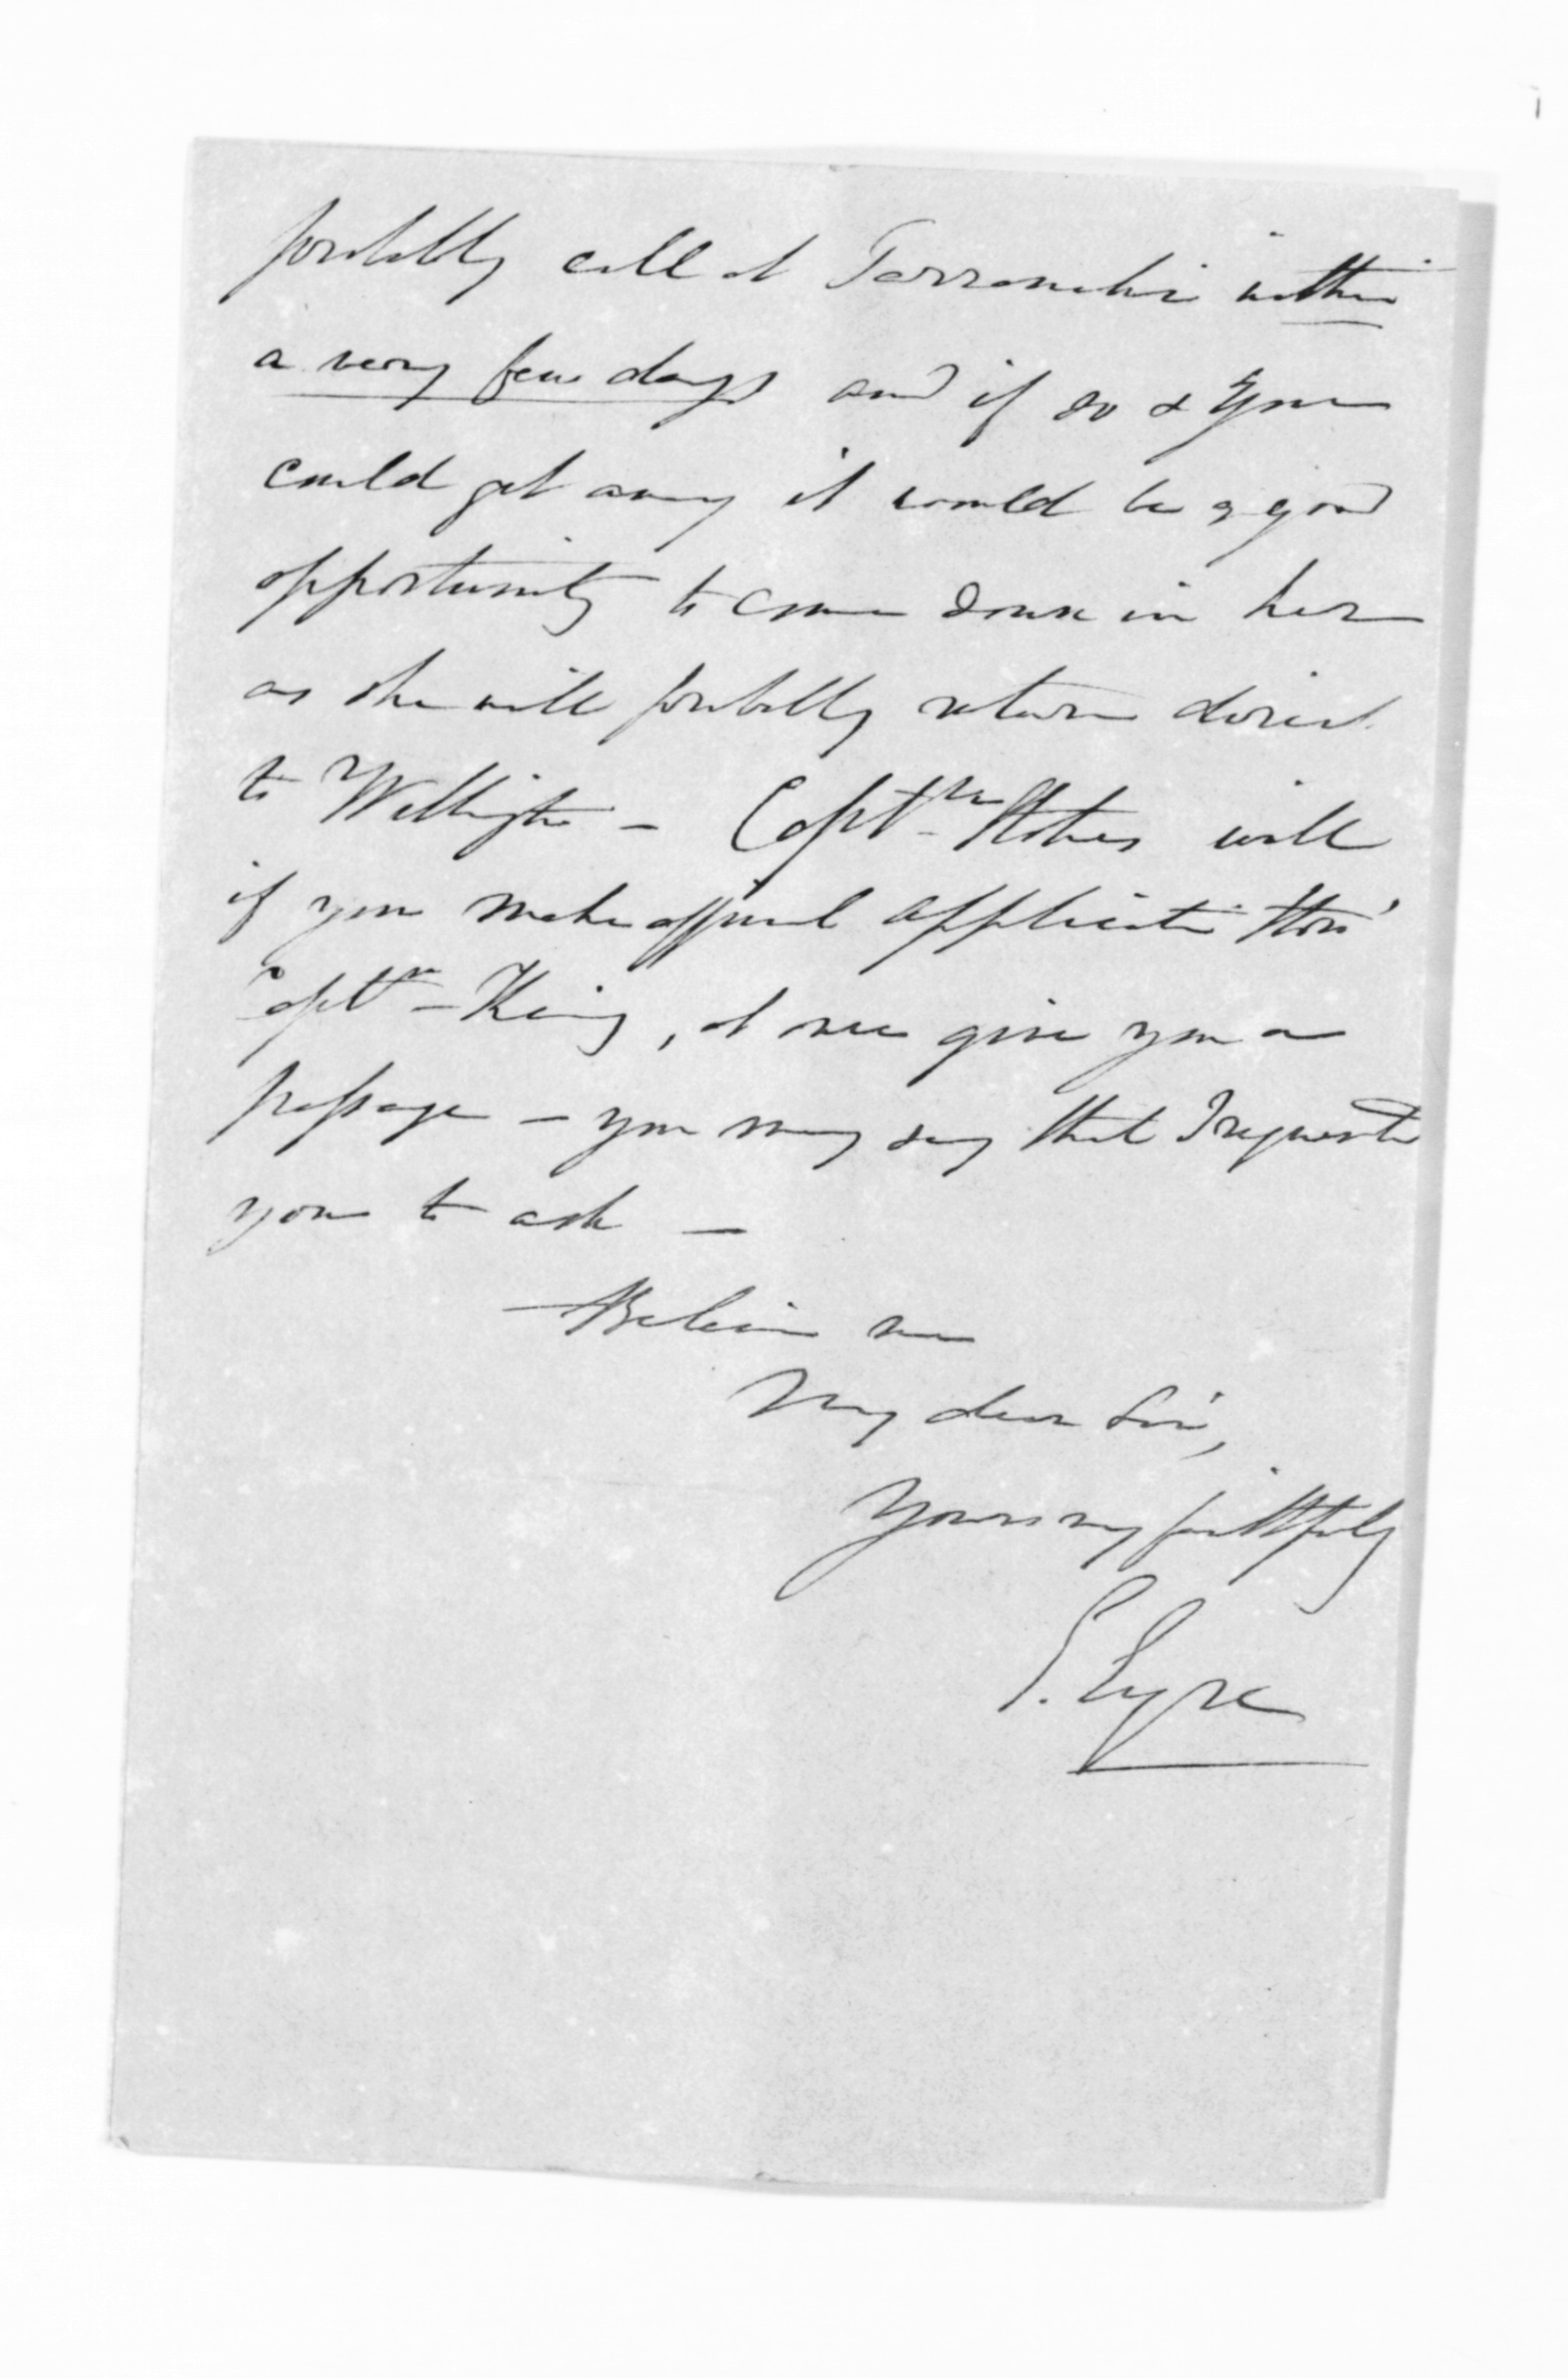 probably call at Tarranaki within
a very few days and if so & you
could get away it would be a good
opportunity to come down in her
as she will probably return direct
to Wellington - Captn Stokes will
if you make official application thro'
Captn - King, at once give you a
passage - you may say that I requested
you to ask -
Believe me
My dear Sir,
Yours very faithfully
E. Eyre